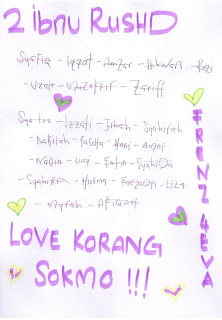 2 ibnu RUSHD
Syafiq - Izzat - Amzar - Ikhwan - Razi
- Uzair - Muzakkir - Zariff
Syazaa - Izzati - Jihah - Syahirah
- Nabilah - Fasiha - Hani - Amni
- Nadia - Umi - Fatin - Syahida
- Syahirah - Husna - Faezati - Liza
- Nyrah - Afiqah
FRENZ 4EVA
LOVE KORANG
SOKMO !!!